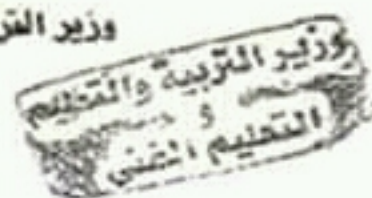 وزير التر
وزير التربية والتعليم
و
التعليم الفني